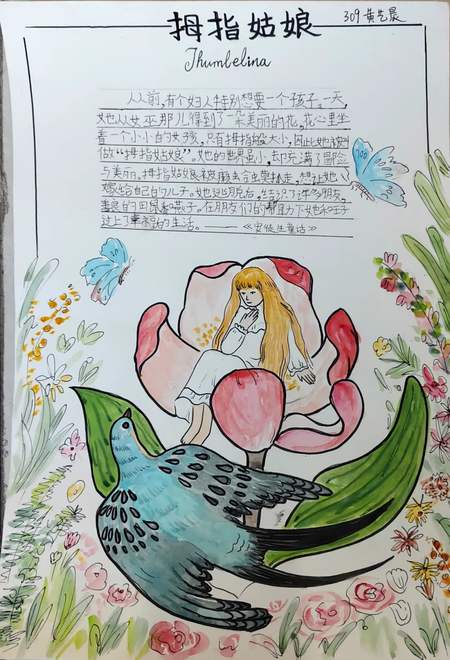 拇指姑娘
309 黄艺晨
Thumbelina
从前,有个妇人特别想要一个孩子。一天,
她从女巫那儿得到了一朵美丽的花,花心里坐
着一个小小的女孩,只有拇指般大小,因此她被叫
做“拇指姑娘”。她的世界虽小,却充满了冒险
与美丽。拇指姑娘被走,想让她
嫁给自己的儿子。她逃脱后,结识了许多朋友,
善良的田鼠和燕子。在朋友们的帮助下她和王子
过上了幸福的生活。——《安徒生童话》